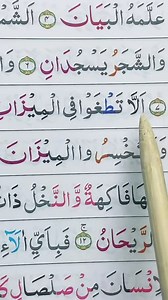 عَلَّمَهُ الْبَيَانَ ٤ الشَّمْ
وَالشَّجَرُ يَسْجُدَانِ ٦ وَا
اَلَّا تَطْغَوْا فِي الْمِيْزَانِ
تُخْسِرُوا الْمِيْزَانَ
هَا فَاكِهَةٌ وَّالنَّخْلُ ذَاتُ
الرَّيْحَانُ ١٢ فَبِاَيِّ اٰلَآءِ
نْسَانَ مِنْ صَلْصَالٍ كَا